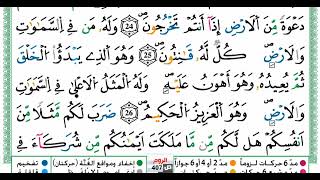 دَعْوَةً مِّنَ الْاَرْضِ اِذَآ اَنْتُمْ تَخْرُجُوْنَ ﴿24﴾ وَلَهٗ مَنْ فِي السَّمٰوٰتِ
وَالْاَرْضِ كُلٌّ لَّهٗ قٰنِتُوْنَ ﴿25﴾ وَهُوَ الَّذِيْ يَبْدَؤُا الْخَلْقَ
ثُمَّ يُعِيْدُهٗ وَهُوَ اَهْوَنُ عَلَيْهِ وَلَهُ الْمَثَلُ الْاَعْلٰى فِي السَّمٰوٰتِ
وَالْاَرْضِ وَهُوَ الْعَزِيْزُ الْحَكِيْمُ ﴿26﴾ ضَرَبَ لَكُمْ مَّثَلًا مِّنْ
اَنْفُسِكُمْ هَلْ لَّكُمْ مِّنْ مَّا مَلَكَتْ اَيْمَانُكُمْ مِّنْ شُرَكَآءَ فِيْ
مدّ 6 حركات لزوماً مدّ 2 أو 4 أو 6 جوازاً الروم 407 إخفاء ومواقع الغنّة (حركتان) تفخيم